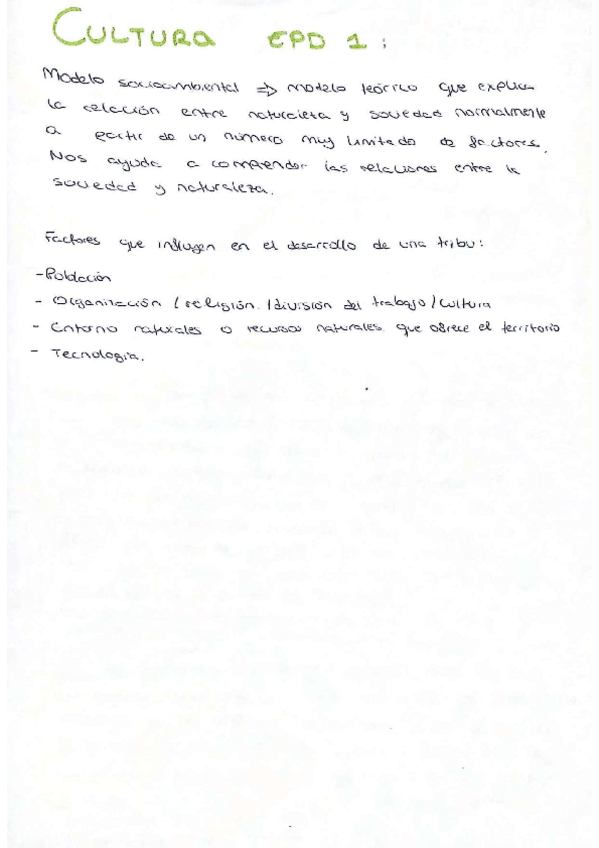 CULTURA EPD 1:
Modelo socioambiental => modelo teórico que explica
la relación entre naturaleza y sociedad normalmente
a partir de un número muy limitado de factores.
Nos ayuda a comprender las relaciones entre la
sociedad y naturaleza.
Factores que influyen en el desarrollo de una tribu:
-Población
- Organización / religión / división del trabajo / cultura
- Entorno naturales o recursos naturales que ofrece el territorio
- Tecnología.